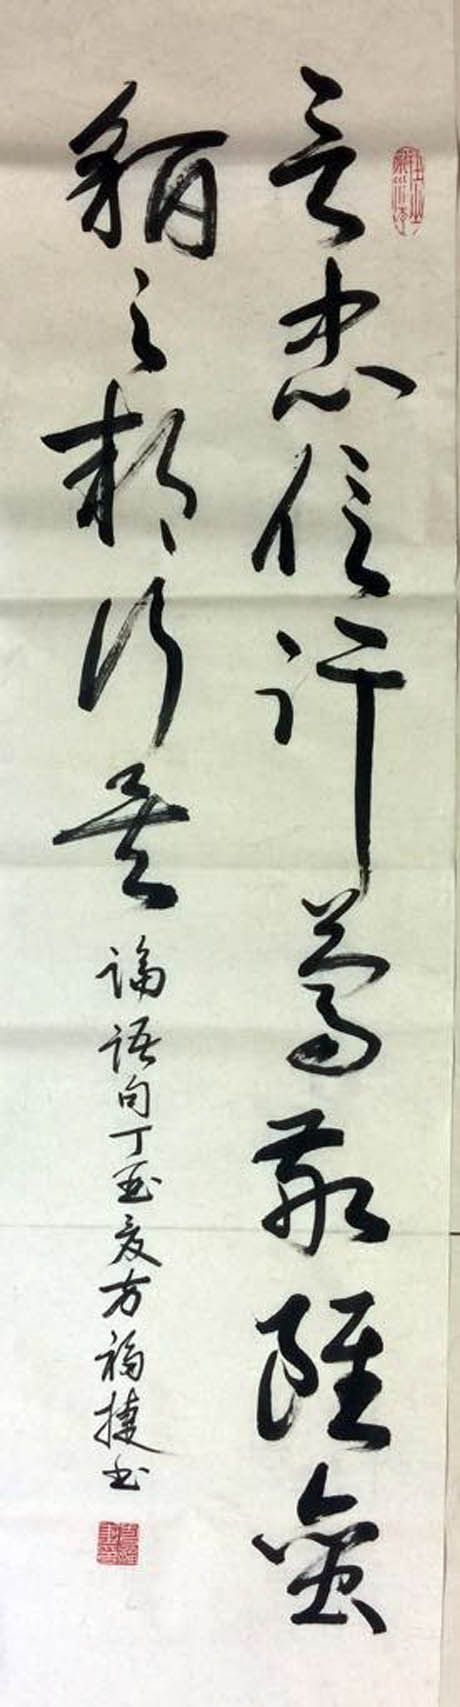 言忠信行篤敬雖蠻
貊之邦行矣 論語句丁夏方福捷书